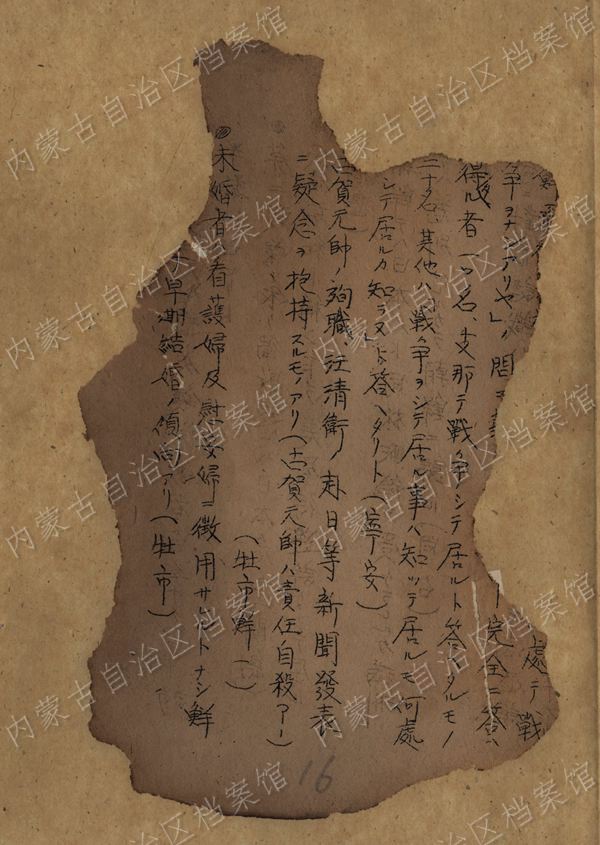 處テ戰
争ヲナシアリヤ」ノ問
完全ニ答ヘ
得ル者一つ名、支那テ戰争シテ居ルト答ヘタルモノ
二十名、其他ハ戰争ヲシテ居ル事ハ知ッテ居ルモ何處
シテ居ルカ知ラヌト答ヘタリト(寧安)
古賀元帥ノ殉職、汪清衛ノ赴日等新聞發表
ニ疑念ヲ抱持スルモノアリ(古賀元帥ハ責任自殺アー)
(牡市鮮)
◎未婚者ハ看護婦及慰安婦ニ徴用サレントナシ鮮
早期結婚ノ傾向アリ(牡市)
16
内蒙古自治区档案馆